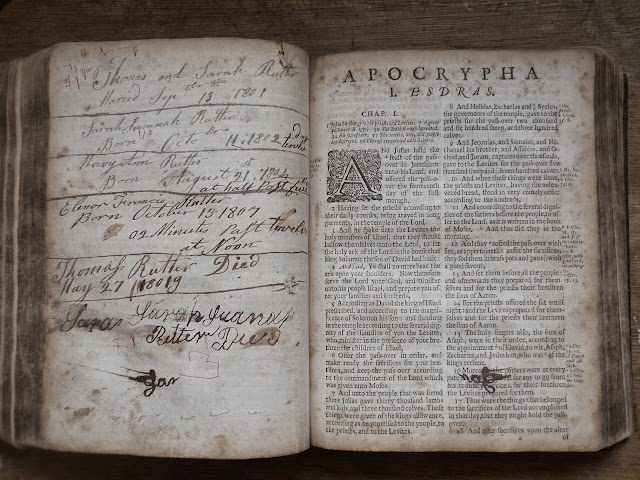 Thomas and Sarah Rutter
Married Sepr 13 1801
Sarah Rutter
Born Octo 11: 1802
Rutter
Born August 21: 1804
at half Past
Elenor Rutter
Born October 15 1807
02 Minutes Past twelve
at Noon
Thomas Rutter Died
May 27 / 18019
Sara Sarah
Rutter Died
Sar
APOCRYPHA
I. ESDRAS.
CHAP. I.
ANd Josias held
the feast of the
passover in Jerusalem
unto his Lord, and
offered the pass-
over the fourteenth
day of the first
month,
2 Having set the priests according to
their daily courses, being arayed in long
garments, in the temple of the Lord.
3 And he spake unto the Levites the
holy ministers of Israel, that they should
hallow themselves unto the Lord, to set
the holy ark of the Lord in the house that
king Solomon the son of David had built:
4 And said, Ye shall no more bear the
ark upon your shoulders. Now therefore
serve the Lord your God, and minister
unto his people Israel, and prepare you af-
ter your families and kindreds,
5 According as David the king of Israel
prescribed, and according to the magnifi-
cence of Solomon his son: and standing
in the temple according to the several dig-
nity of the families of you the Levites,
who minister in the presence of your bre-
thren the children of Israel,
6 Offer the passover in order, and
make ready the sacrifices for your bre-
thren, and keep the passover according
to the commandment of the Lord which
was given unto Moses.
7 And unto the people that was found
there Josias gave thirty thousand lambs
and kids, and three thousand calves. These
things were given of the kings allowance,
according as he promised to the people, to
the priests, and to the Levites.
8 And Helkias, Zacharias and Syelus,
the governours of the temple, gave to the
priests for the passover two thousand
and six hundred sheep, and three hundred
calves.
9 And Jeconias, and Samaias, and Na-
thanael his brother, and Assabias, and O-
chiel, and Joram, captains over thousands,
gave to the Levites for the passover five
thousand sheep, and seven hundred calves.
10 And when these things were done,
the priests and Levites, having the unlea-
vened bread, stood in very comely order
according to the kindreds,
11 And according to the several dignities
of the fathers before the people, to of-
fer to the Lord, as it is written in the book
of Moses. And thus did they in the
morning.
12 And they rosted the passover with
fire, as appertaineth: as for the sacrifices,
they sod them in brass pots and pans with
a good savour,
13 And set them before all the people:
and afterwards they prepared for them-
selves and for the priests their brethren
the sons of Aaron.
14 For the priests offered the fat until
night: and the Levites prepared for them-
selves and for the priests their brethren
the sons of Aaron.
15 The holy singers also, the sons of
Asaph, were in their order, according to
the appointment of David, to wit, Asaph,
Zacharias, and Jeduthun, who was of the
kings retinue.
16 Moreover the porters were at every
gate
the Levites prepared for them.
17 Thus were the things that belonged
to the sacrifices of the Lord accomplished
in that day, that they might hold the pass-
over,
18 And offer sacrifices upon the altar
of